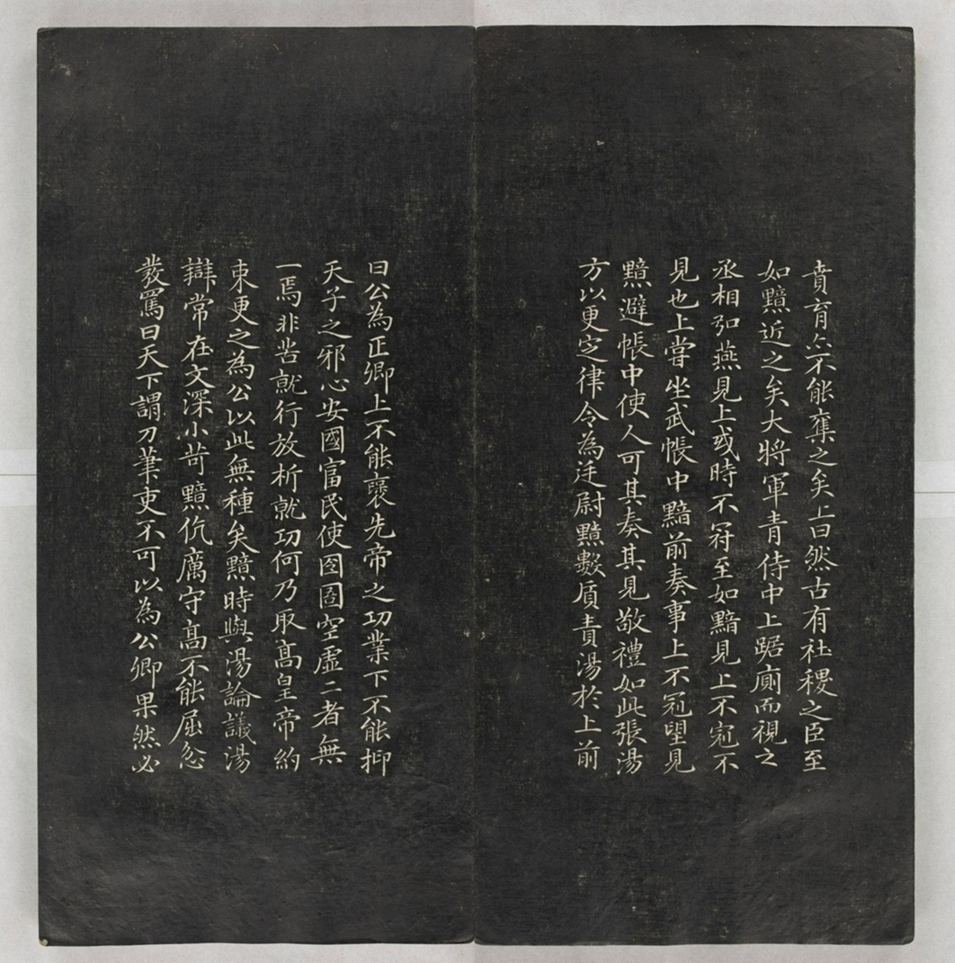 賁育亦不能奪之矣上曰然古有社稷之臣至
如黯近之矣大將軍青侍中上踞廁而視之
丞相弘燕見上或時不冠至如黯見上不冠不
見也上嘗坐武帳中黯前奏事上不冠望見
黯避帳中使人可其奏其見敬禮如此張湯
方以更定律令為廷尉黯數質責湯於上前
曰公為正卿上不能襃先帝之功業下不能抑
天子之邪心安國富民使囹圄空虛二者無
一焉非苦就行放析就功何乃取髙皇帝約
束更之為公以此無種矣黯時與湯論議湯
辯常在文深小苛黯伉厲守髙不能屈忿
發罵曰天下謂刀筆吏不可以為公卿果然必